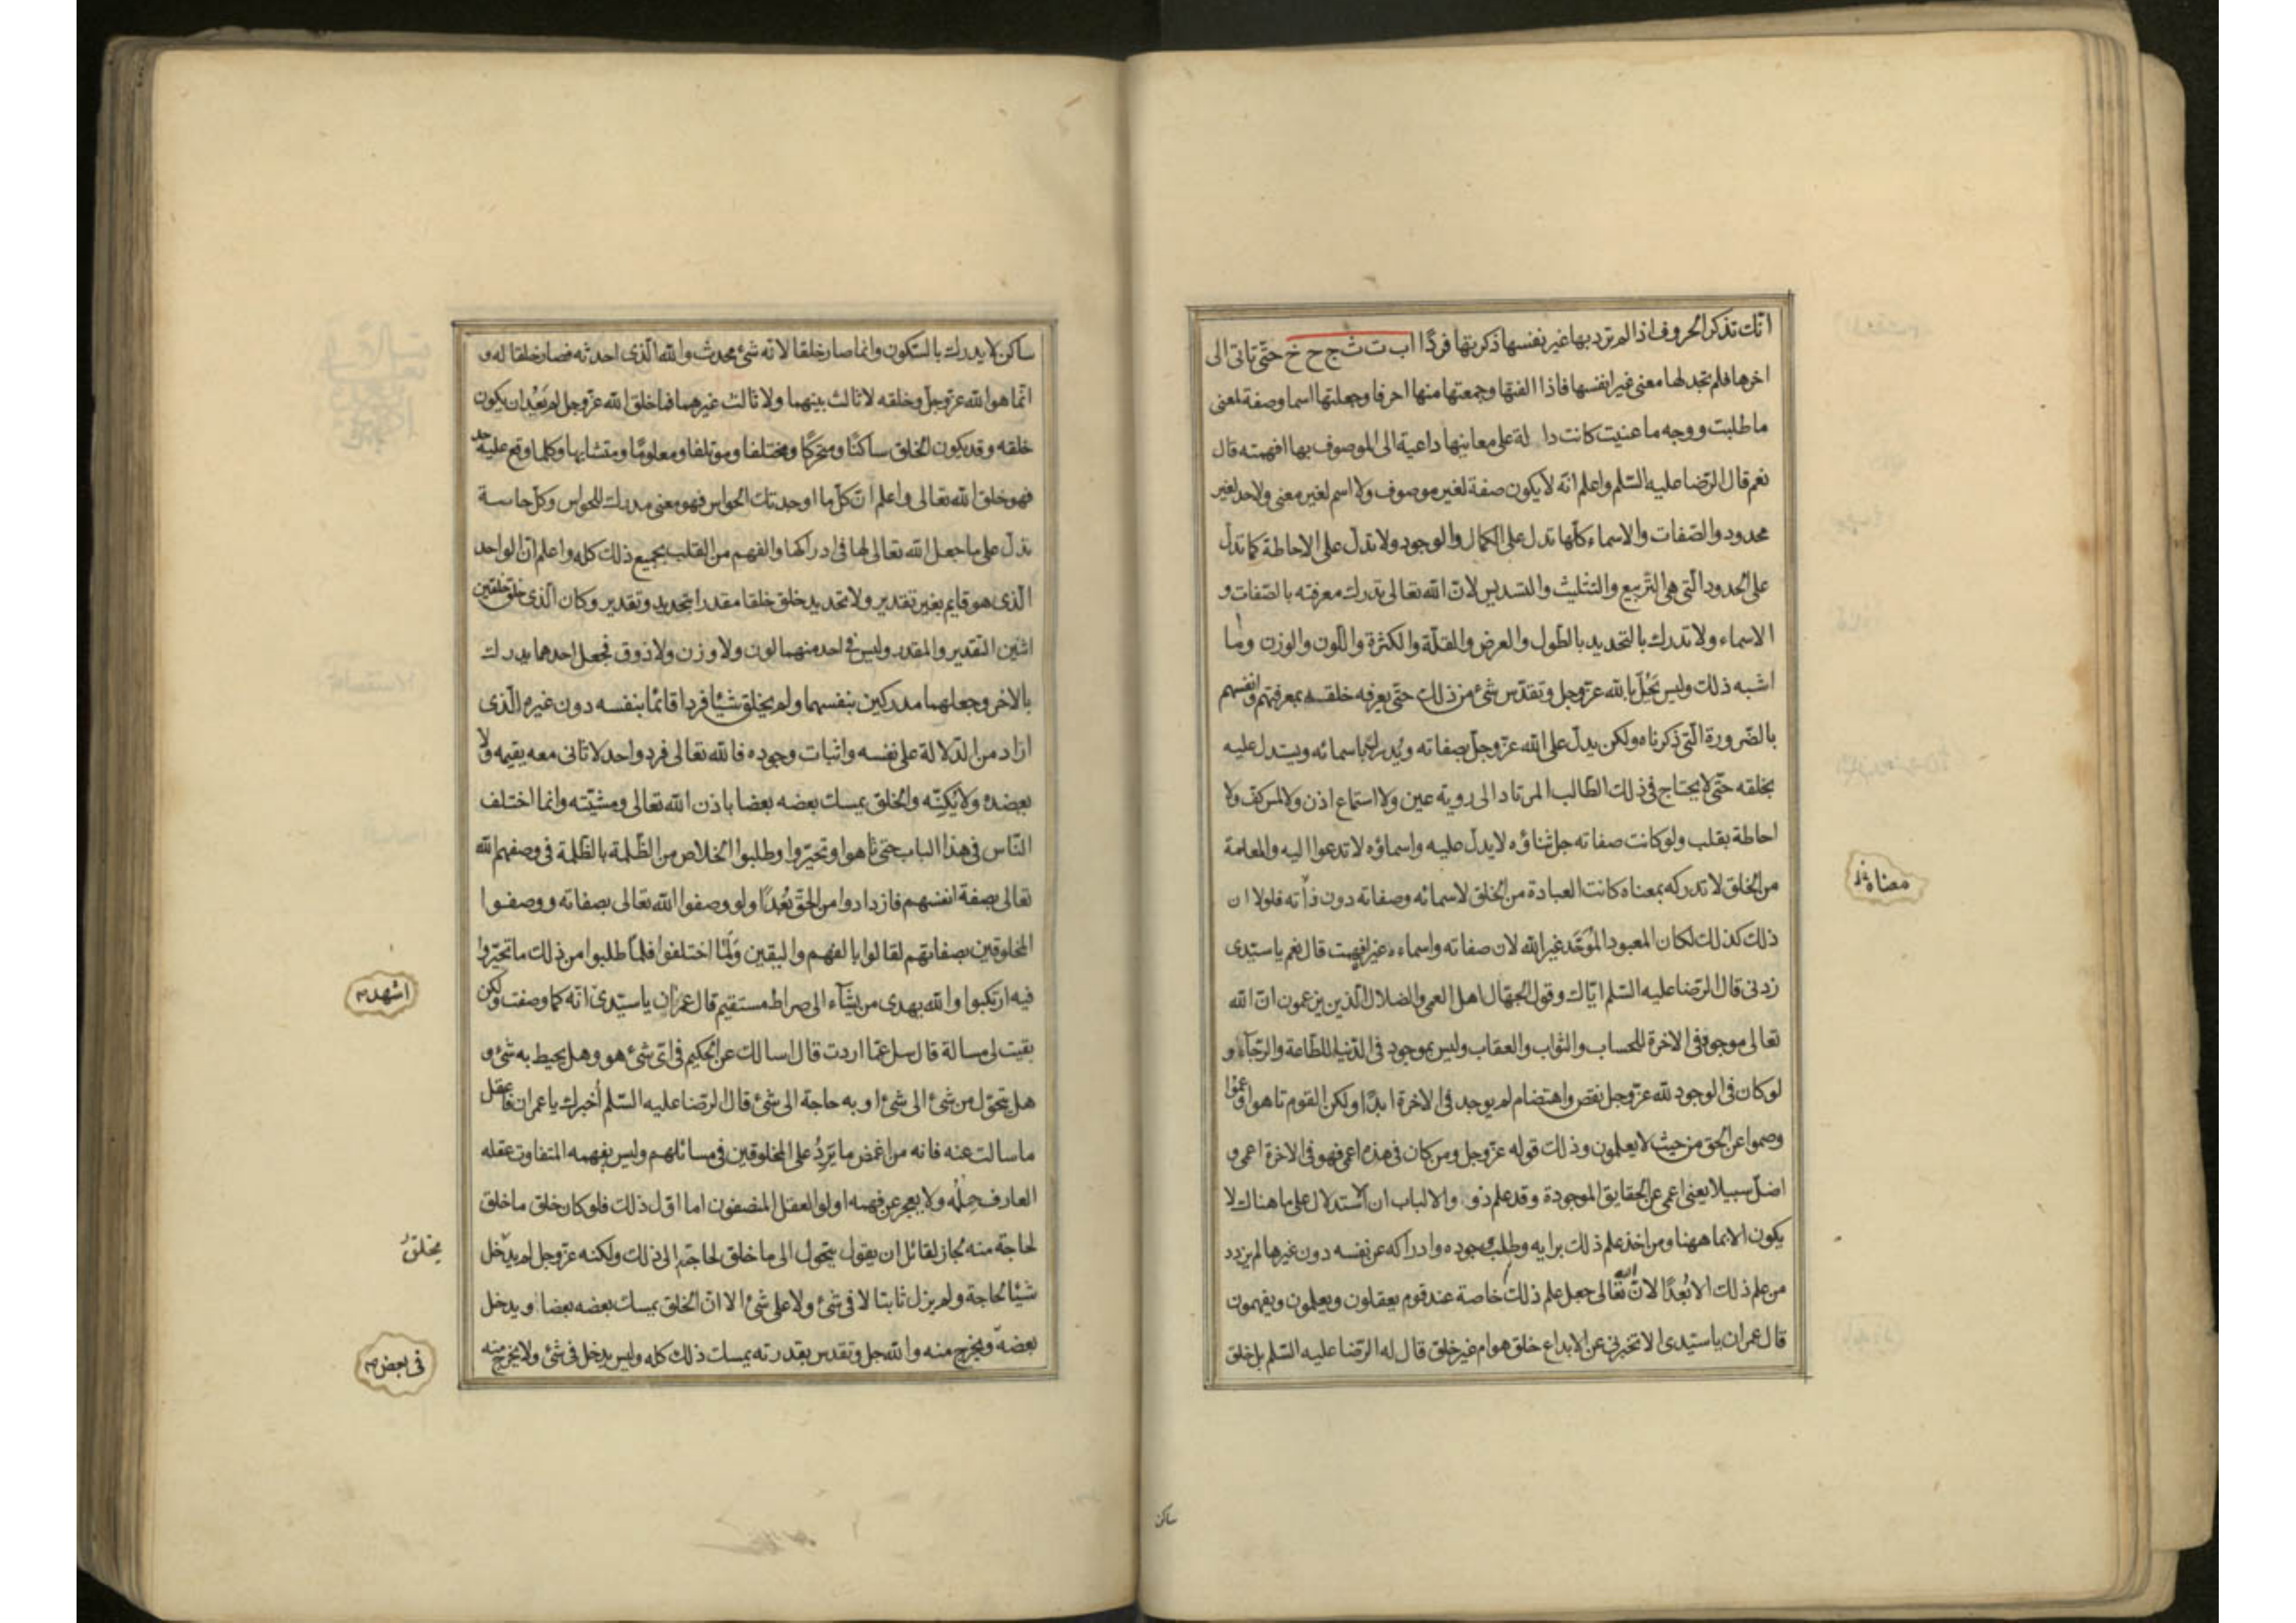 انّك تذكر الحروف اذا لم ترد بها غير نفسها ذكرتها فردًا ا ب ت ث ج ح خ حتّى تاتى الى
اخرها فلم تجد لها معنى غير انفسها فاذا الفتها وجمعتها منها احرفا وجعلتها اسما وصفة لمعنى
ما طلبت ووجه ما عنيت كانت دا لة على معانيها داعية الى الموصوف بها افهمته قال
نعم قال الرّضا عليه السّلم واعلم انّه لا يكون صفة لغير موصوف ولا اسم لغير معنى ولا حد لغير
محدود والصّفات والاسماء كلّها تدل على الكمال والوجود ولا تدلّ على الاحاطة كما تدلّ
على الحدود الّتى هى التّربيع والتثليث والتسديس لانّ الله تعالى تدرك معرفته بالصّفات و
الاسماء ولا تدرك بالتحديد بالطّول والعرض والقلّة والكثرة واللّون والوزن وما
اشبه ذلك وليس يَحُلّ بالله عزّوجل وتقدّس شئ من ذلك حتّى يعرفه خلقه بمعرفتهم انفسهم
بالضّرورة الّتى ذكرناه ولكن يدلّ على الله عزّوجلّ بصفاته ويُدرك باسمائه ويستدل عليه
بخلقه حتّى لا يحتاج فى ذلك الطّالب المرتاد الى روية عين ولا استماع اذن ولا لمس كفّ ولا
احاطة بقلب ولو كانت صفاته جل ثناؤه لا يدلّ عليه واسماؤه لا تدعوا اليه والمعلمة
من الخلق لا تدركه بمعناه كانت العبادة من الخلق لاسمائه وصفاته دون ذاته فلولا ان
معناه
ذلك كذلك لكان المعبود المُوَحَّد غير الله لان صفاته واسماءه غيره افهمت قال نعم يا سيّدى
زدنى قال الرّضا عليه السّلم ايّاك وقول الجهّال اهل العمى والضلال الّذين يزعمون انّ الله
تعالى موجود فى الاخرة للحساب والثواب والعقاب وليس بموجود فى الدّنيا للطّاعة والرّجاء و
لو كان فى الوجود لله عزّوجل نقص واهتضام لم يوجد فى الاخرة ابدًا ولكن القوم تاهوا وعموا
وصموا عن الحق من حيث لا يعلمون وذلك قوله عزّوجل ومن كان فى هذه اعمى فهو فى الاخرة اعمى و
اضلّ سبيلا يعنى اعمى عن الحقايق الموجودة وقد علم ذو والالباب ان الاستدلال على ما هناك لا
يكون الا بما ههنا ومن اخذ علم ذلك برايه وطلب وجوده وادراكه عن نفسه دون غيرها لم يزدد
من علم ذلك الا بُعْدًا لانّ الله تعالى جعل علم ذلك خاصة عند قوم يعقلون ويعلمون ويفهمون
قال عمران يا سيّدى الا تخبرنى عن الابداع خلق هو ام غير خلق قال له الرّضا عليه السّلم بل خلق
ساكن
ساكن لا يدرك بالسّكون وانما صار خلقا لانّه شئ محدث والله الّذى احدثه فصار خلقا له و
انّما هو الله عزّوجلّ وخلقه لا ثالث بينهما ولا ثالث غيرهما فما خلق الله عزّوجل لم يَعْدُ ان يكون
خلقه وقد يكون الخلق ساكنًا ومتحركًا ومختلفا وموتلفا ومعلومًا ومتشابها وكلما وقع عليه حد
فهو خلق الله تعالى واعلم انّ كلّ ما اوجدتك الحواس فهو معنى مدرك للحواس وكلّ حاسة
تدلّ على ما جعل الله تعالى لها فى ادراكها والفهم من القلب بجميع ذلك كله واعلم انّ الواحد
الّذى هو قايم بغير تقدير ولا تحديد خلق خلقا مقدرا بتحديد وتقدير وكان الّذى خلق خلقين
اثنين التّقدير والمقدر وليس فى احد منهما لون ولا وزن ولا ذوق فجعل احدهما يدرك
بالاخر وجعلهما مدركين بنفسهما ولم يخلق شيئا فردا قائمًا بنفسه دون غيره الّذى
اراد من الدّلالة على نفسه واثبات وجوده فالله تعالى فرد واحد لا ثانى معه يقيمه ولا
يعضده ولا يُكِنّه والخلق يمسك بعضه بعضا باذن الله تعالى ومشيّته وانما اختلف
النّاس فى هذا الباب حتى تاهوا وتحيّروا وطلبوا الخلاص من الظّلمة بالظّلمة فى وصفهم الله
تعالى بصفة انفسهم فازدادوا من الحقّ بُعْدًا ولو وصفوا الله تعالى بصفاته ووصفوا
المخلوقين بصفاتهم لقالوا بالفهم واليقين وَلَمَّا اختلفوا فلمّا طلبوا من ذلك ما تحيّروا
فيه ارتكبوا والله يهدى من يشآء الى صراط مستقيم قال عمران يا سيّدى انّه كما وصفت ولكن
اشهد
بقيت لى مسالة قال سل عمّا اردت قال اسالك عن الحكيم فى اىّ شئ هو وهل يحيط به شئ و
هل يتحوّل من شئ الى شئ او به حاجة الى شئ قال الرّضا عليه السّلم أخبرك يا عمران فاعقل
ما سالت عنه فانه من اغمض ما يَرِدُ على المخلوقين فى مسائلهم وليس يفهمه المتفاوت عقله
العارف حِلْمُه ولا يعجز عن فهمه اولوا العقل المنصفون اما اوّل ذلك فلو كان خلق ما خلق
لحاجة منه لجاز لقائل ان يقول يتحوّل الى ما خلق لحاجته الى ذلك ولكنه عزّوجل لم يدخل
يخلق
شيئا لحاجة ولم يزل ثابتا لا فى شئ ولا على شئ الا انّ الخلق يمسك بعضه بعضا ويدخل
بعضه ويخرج منه والله جل وتقدس بقدرته يمسك ذلك كله وليس يدخل فى شئ ولا يخرج منه
فى بعض